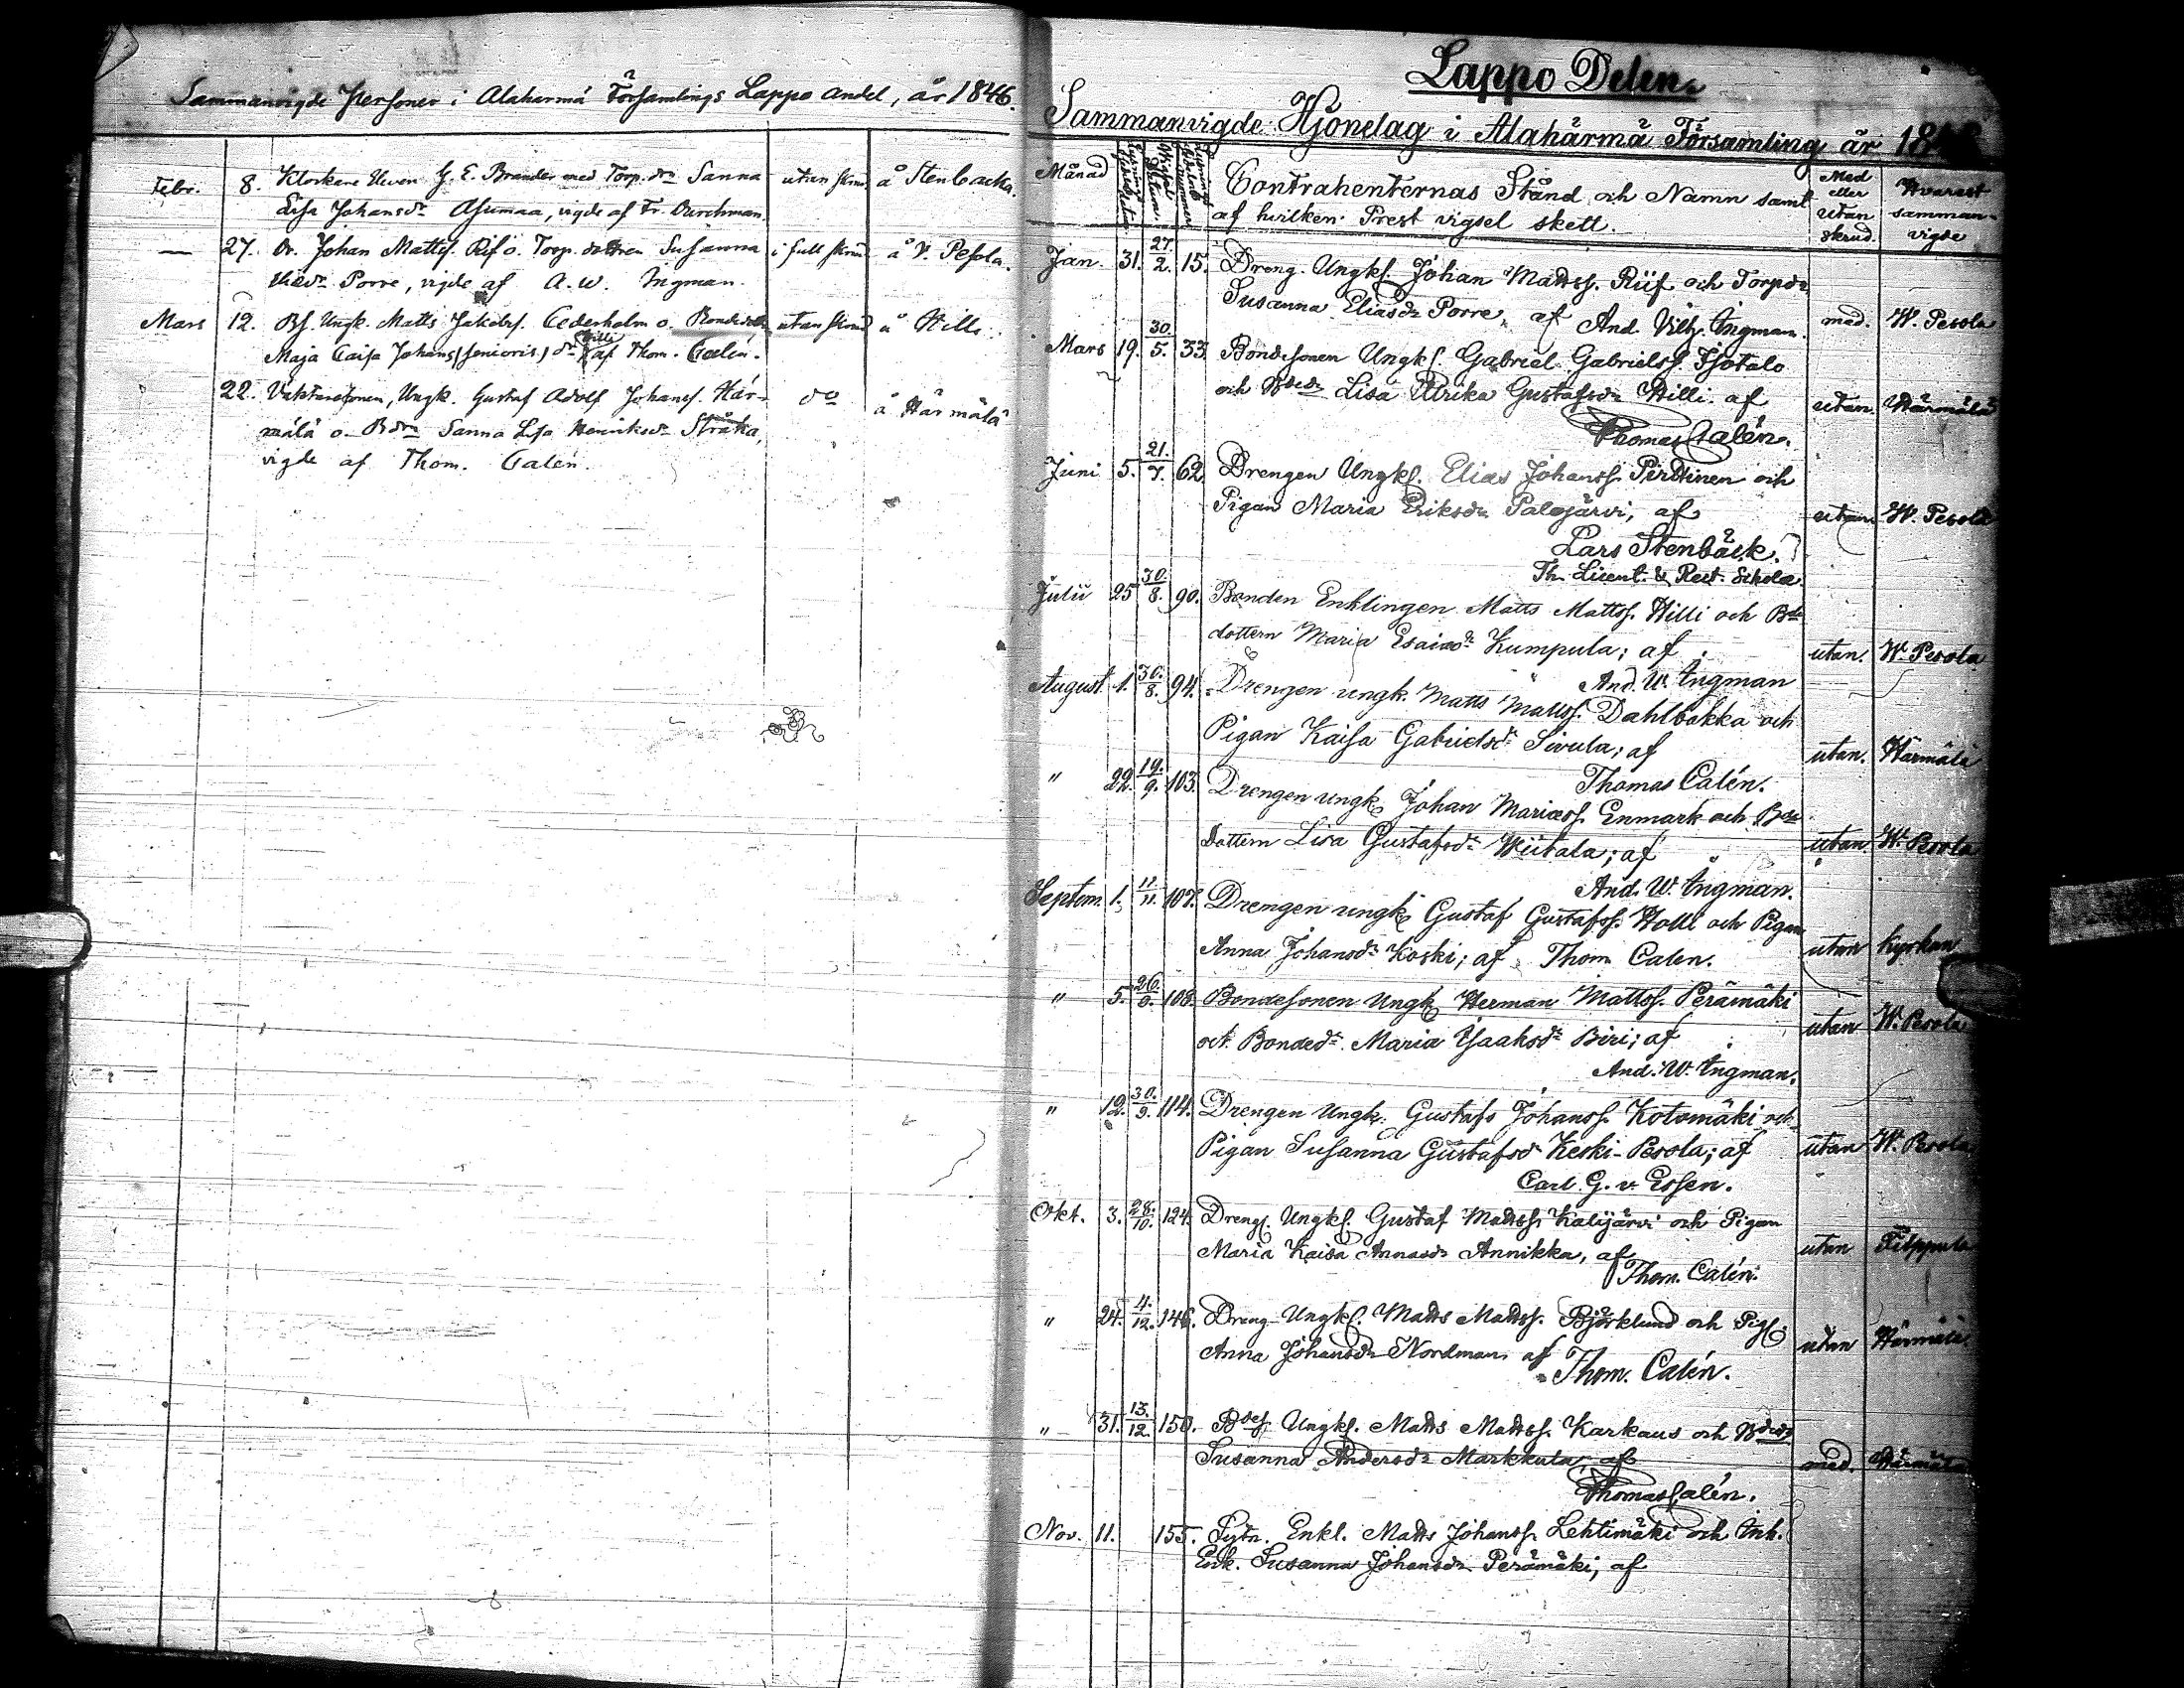 Sammanvigde Personer i Alahärmä Församlings Lappo andel, år 1846.
Febr. 8. Klockare Eleven G. E. Brander med Torp. drn Sanna utan skrud å Stenbacka.
Lisa Johansdr Asumaa, vigde af Fr. Durchman.
— 27. Dr. Johan Mattss. Rif o. Torp. dottren Susanna i full skrud å V. Pesola.
Eliædr Porre, vigde af A. W. Ingman.
Mars 12. Bs. Ungk. Matts Jakobs. Cederholm o. Bondedottr utan skrud å Hilli.
Maja Caisa Johans (senioris) dr Hilli af Thom. Calén.
22. Ungk. Gustaf Adolf Johans. Här- do å Härmälä
mälä o. Bdrn Sanna Lisa Henriksdr Stråka,
vigde af Thom. Calén.
Lappo Delen.
Sammanvigde Hjonelag i Alahärmä Församling år 184
Månad Contrahenternas Stånd och Namn samt af hvilken Prest vigsel skett. Med eller utan skrud. Hvarest sammanvigde
Jan. 31. 27./2. 15. Dreng. Ungks. Johan Mattss. Riif och Torpdr
Susanna Eliasdr Porre, af And. Vilh. Ingman. med. W. Pesola
Mars 19. 30./5. 33. Bondesonen Ungks. Gabriel Gabrielss. Isotalo
och Bdedr Lisa Ulrika Gustafsdr Hilli. af utan. Härmälä
Thomas Calén.
Juni 5. 21./7. 62. Drengen Ungks. Elias Johanss. Pirttinen och
Pigan Maria Eriksdr Palojärvi, af utan W. Pesola
Lars Stenbäck.
Th. Licent. & Rect. Scholæ.
Julii 25 30./8. 90. Bonden Enklingen Matts Mattss. Hilli och Bde
dottern Maria Esaiasdr Kumpula; af utan. W. Pesola
And. W. Ingman
August. 1. 30./8. 94. Drengen ungk. Matts Mattss. Dahlbakka och
Pigan Kaisa Gabrielsdr Sivula; af utan. Härmälä
Thomas Calén.
" 22. 19./9. 103. Drengen ungk. Johan Mariæss. Enmark och Bde
dottern Lisa Gustafsdr Wiitala; af utan. W. Pesola
And. W. Ingman.
Septem. 1. 11/11. 107. Drengen ungk. Gustaf Gustafss. Holli och Pigan
Anna Johansdr Koski; af Thom Calen. utan kyrkan
" 5. 26./9. 108. Bondesonen Ungk. Herman Mattss. Perämäki
och Bondedr. Maria Isaaksdr Biri; af utan W. Pesola
And. W. Ingman.
" 12. 30./9. 114. Drengen Ungk. Gustaf Johanss. Kotomäki och
Pigan Susanna Gustafsdr Keski-Pesola; af utan W. Pesola
Carl. G. v. Essen.
Okt. 3. 28./10. 124. Drengs. Ungks. Gustaf Mattss. Kalijärvi och Pigan
Maria Kaisa Annasdr Annikka, af utan Filppula
Thom. Calén.
" 24. 4./12. 146. Dreng Ungks. Matts Mattss. Björklund och Pig.
Anna Johansdr Nordman af utan Härmälä.
Thom. Calén.
" 31. 13./12. 150. Bdes. Ungks. Matts Mattss. Karkaus och Bdedr
Susanna Andersdr Markkula, af med. Härmälä
Thomas Calén.
Nov. 11. 155. Sytn. Enkl. Matts Johanss. Lehtimäki och Inh.
Enk. Susanna Johansdr Perämäki, af